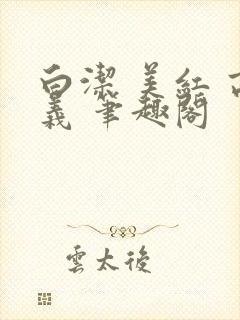 白潔 美紅 高
義 筆趣閣
雲太後